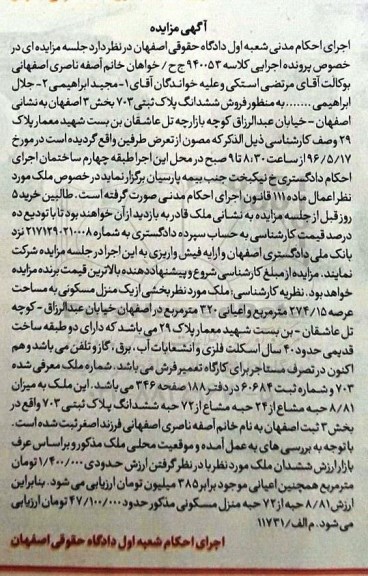 آگهی مزایده
اجرای احکام مدنی شعبه اول دادگاه حقوقی اصفهان در نظر دارد جلسه مزایده ای در
خصوص پرونده اجرایی کلاسه ۹۴۰۰۵۳ ج ح / خواهان خانم آصفه ناصری اصفهانی
بوکالت آقای مرتضی استکی و علیه خواندگان آقای ۱- مجید ابراهیمی ۲- جلال
ابراهیمی ....... به منظور فروش ششدانگ پلاک ثبتی ۷۰۳ بخش ۳ اصفهان به نشانی
اصفهان - خیابان عبدالرزاق کوچه بازارچه تل عاشقان بن بست شهید معمار پلاک
۲۹ وصف کارشناسی ذیل الذکر که مصون از تعرض طرفین واقع گردیده است در مورخ
۹۶/۵/۱۷ از ساعت ۸:۳۰ تا ۹ صبح در محل این اجرا طبقه چهارم ساختمان اجرای
احکام دادگستری خ نیکبخت جنب بیمه پارسیان برگزار نماید در خصوص ملک مورد
نظر اعمال ماده ۱۱۱ قانون اجرای احکام مدنی صورت گرفته است . طالبین خرید ۵
روز قبل از جلسه مزایده به نشانی ملک قادر به بازدید از آن خواهند بود تا با تودیع ده
درصد قیمت کارشناسی به حساب سپرده دادگستری به شماره ۲۱۷۱۲۹۰۲۱۰۰۸ نزد
بانک ملی دادگستری اصفهان و ارایه فیش واریزی به این اجرا در جلسه مزایده شرکت
نمایند. مزایده از مبلغ کارشناسی شروع و پیشنهاد دهنده بالاترین قیمت برنده مزایده
خواهد بود. نظریه کارشناسی: ملک مورد نظر بخشی از یک منزل مسکونی به مساحت
عرصه ۲۷۴/۱۵ مترمربع و اعیانی ۳۲۰ مترمربع در اصفهان خیابان عبدالرزاق - کوچه
تل عاشقان - بن بست شهید معمار پلاک ۲۹ می باشد که دارای دو طبقه ساخت
قدیمی حدود ۴۰ سال اسکلت فلزی و انشعابات آب ، برق ، گاز و تلفن می باشد و هم
اکنون در تصرف مستاجر برای کارگاه تعمیر فرش می باشد. شماره ملک معرفی شده
۷۰۳ و شماره ثبت ۶۰۶۸۴ در دفتر ۱۸۸ صفحه ۳۴۶ می باشد. این ملک به میزان
۸/۸۱ حبه مشاع از ۲۴ حبه مشاع از ۷۲ حبه ششدانگ پلاک ثبتی ۷۰۳ واقع در
بخش ۳ ثبت اصفهان به نام خانم آصفه ناصری اصفهانی فرزند اصغر ثبت شده است .
با توجه به بررسی های به عمل آمده و موقعیت محلی ملک مذکور و بر اساس عرف
بازار ارزش ششدان ملک مورد نظر با در نظر گرفتن ارزش حدودی ۱/۴۰۰/۰۰۰ تومان
مترمربع همچنین اعیانی موجود برابر ۳۸۵ میلیون تومان ارزیابی می شود. بنابراین
ارزش ۸/۸۱ حبه از ۷۲ حبه منزل مسکونی مذکور حدود ۴۷/۱۰۰/۰۰۰ تومان ارزیابی
می شود. م الف/ ۱۱۷۳۱
اجرای احکام شعبه اول دادگاه حقوقی اصفهان